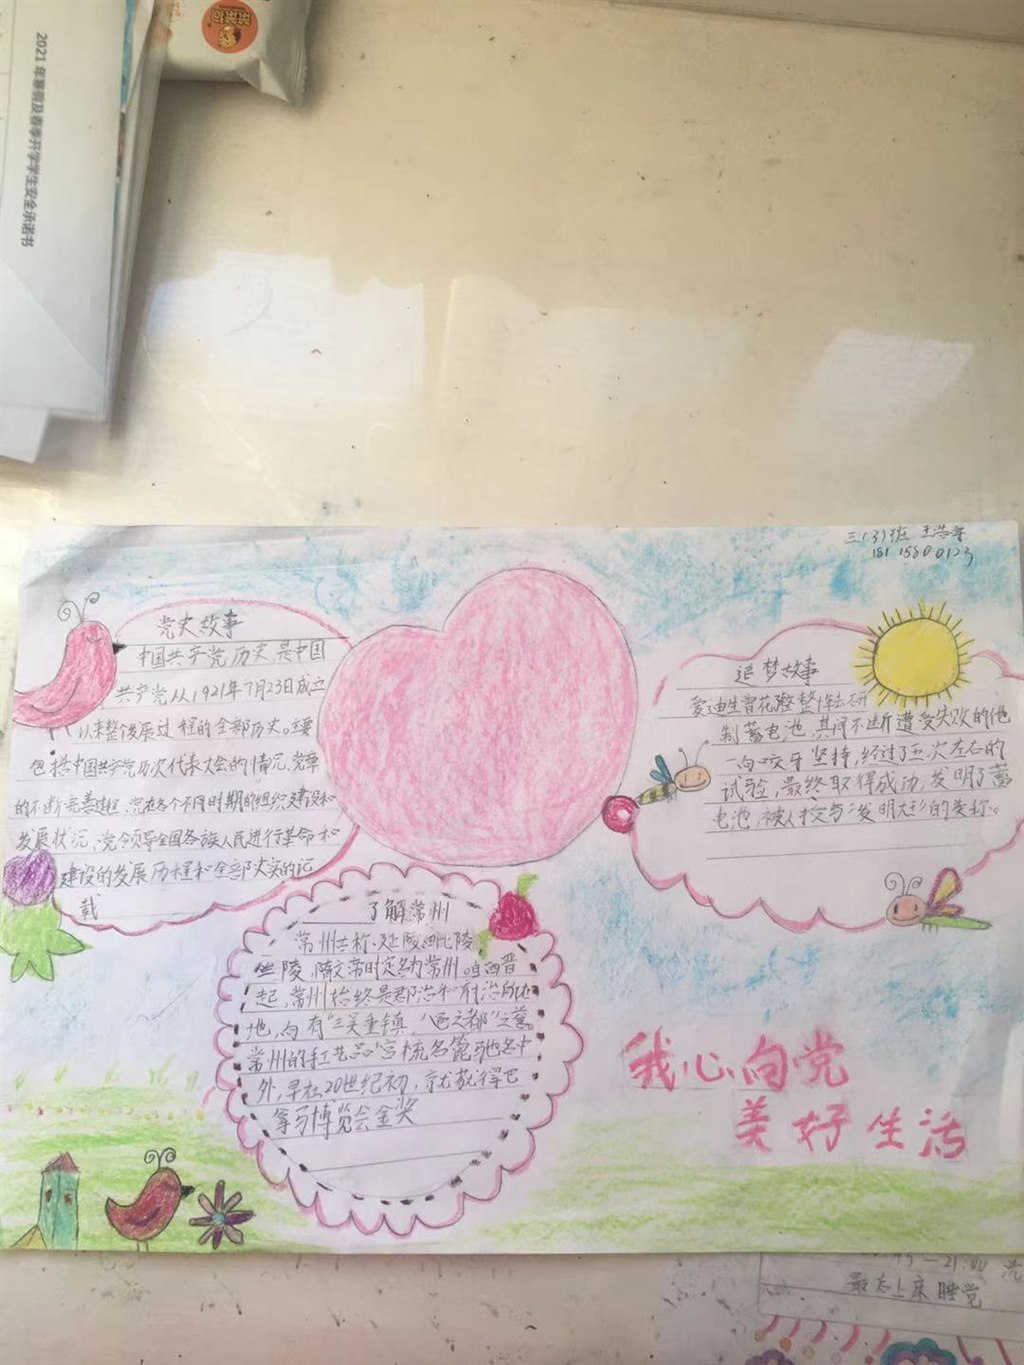 2021年寒假及春季开学学生安全承诺书
三(3)班 王浩
党史故事
中国共产党历史,是中国
共产党从1921年7月23日成立
以来整个发展过程的全部历史。主要
包括中国共产党历次代表大会的情况、党章
的不断完善过程、党在各个不同时期的组织建设和
发展状况、党领导全国各族人民进行革命和
建设的发展历程和全部史实的记
载
追梦故事
爱迪生曾花整整十年去研
制蓄电池,其间不断遭受失败的他
一向咬牙坚持,经过了五次左右的
试验,最终取得成功,发明了蓄
电池,被人授与"发明大王"的美称。
了解常州
常州古称、延陵、毗陵
陵,隋文帝时定名为常州。自西晋
起,常州始终是郡治和府治所在
地,向有"三吴重镇,八邑之都"之誉。
常州的手工艺品"宫梳名篦"驰名中
外,早在20世纪初,就获得巴
拿马博览会金奖
我心向党
美好生活
21:00
最忘上床睡觉